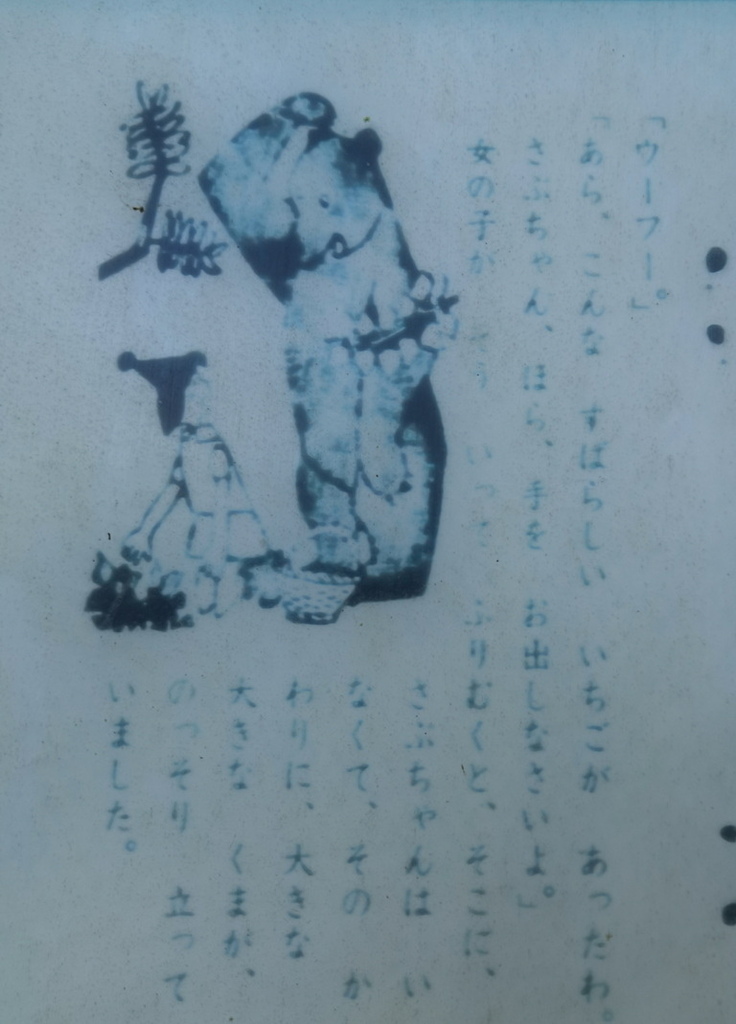 「ウーフー。」
「あら、こんな すばらしい いちごが あったわ。
さぶちゃん、ほら、手を お出しなさいよ。」
女の子が そう いって ふりむくと、そこに、
さぶちゃんは い
なくて、その か
わりに、大きな
大きな くまが、
のっそり 立って
いました。